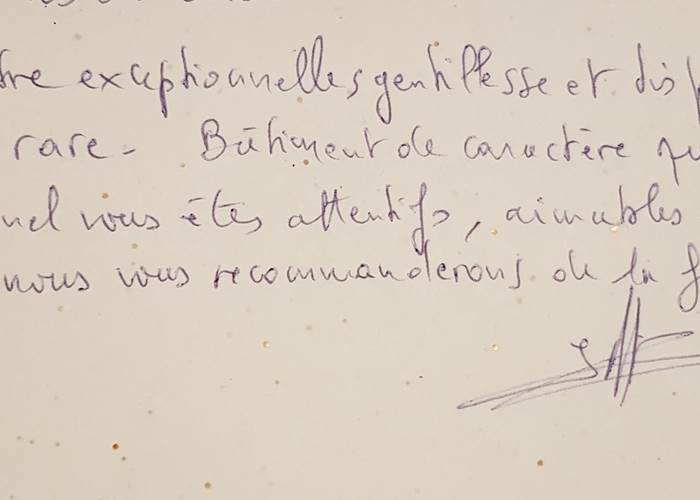 tre exceptionnelles gentillesse et disp
rare - Bâtiment de caractère qu
nel vous êtes attentifs, aimables
nous vous recommanderons de la f